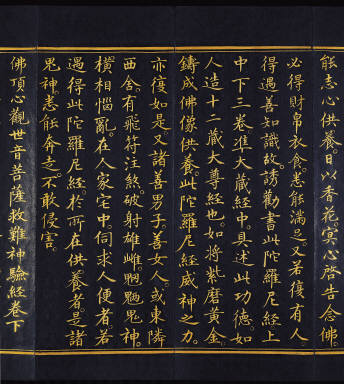 能志心供養日以香花冥心啓告念佛
必得財帛衣食悉能滿足又若復有人
得遇善知識故誘勸書此陀羅尼經上
中下三卷准大藏經中具述此功德如
人造十二藏大尊經也如將紫磨黃金
鑄成佛像供養此陀羅尼經威神之力
亦復如是又諸善男子善女人或東隣
西舍有飛符注煞破射雄雌魍魎鬼神
橫相惱亂在人家宅中伺求人便者若
遇得此陀羅尼經於所在供養者是諸
鬼神悉能奔走不敢侵害
佛頂心觀世音菩薩救難神驗經卷下